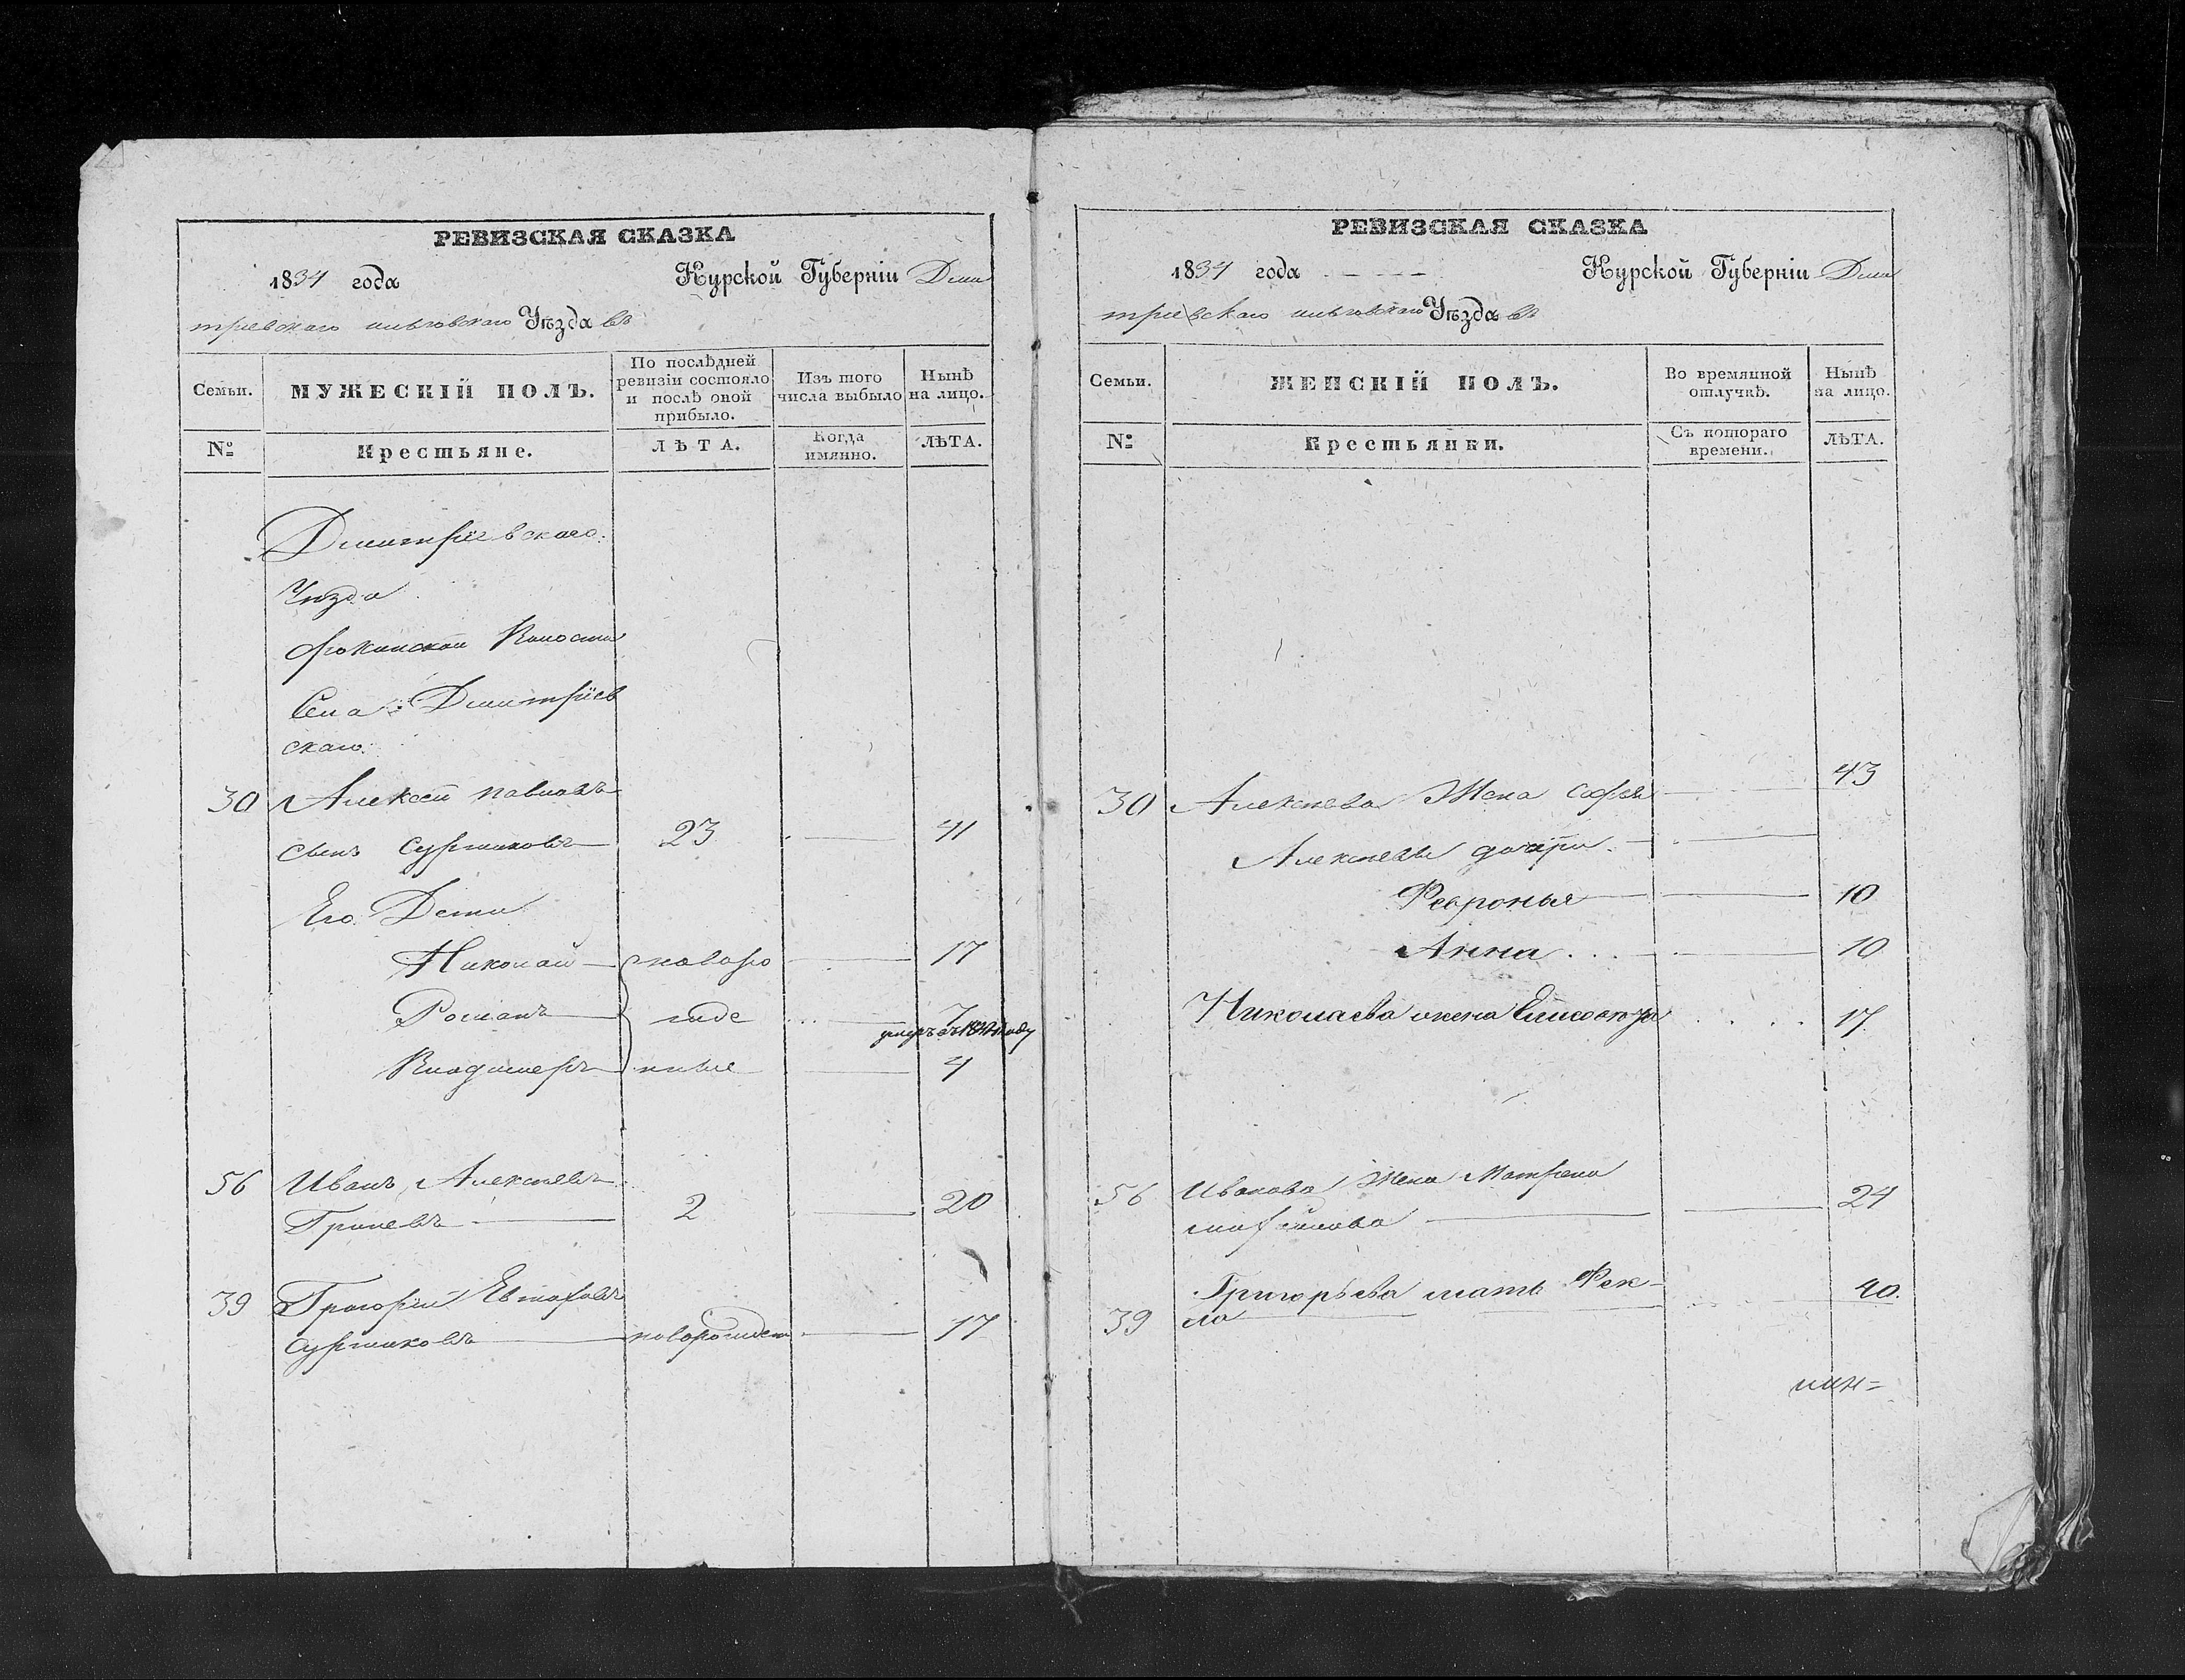 РЕВИЗСКАЯ СКАЗКА
1834 года Курской Губерніи Дми
тріевскаго Уѣзда въ
Семьи. МУЖЕСКІЙ ПОЛЪ. По послѣдней ревизіи состояло и послѣ оной прибыло. Изъ того числа выбыло Нынѣ на лицо.
№ Крестьяне. ЛѢТА. Когда имянно. ЛѢТА.
Дмитріевскаго
Уѣзда
Фокинской Волости
Села Дмитріев
скаго
30 Алексей Павловъ
сынъ Сургиковъ 23 41
Его Дети
Николай новоро 17
Романъ жде 7
умеръ въ году
Владимеръ нные 4
56 Иванъ Алексѣевъ
Гриневъ 2 20
39 Григорій Евтафовъ
Сургиковъ новорожден 17
РЕВИЗСКАЯ СКАЗКА
1834 года Курской Губерніи Дми
тріевскаго Уѣзда въ
Семьи. ЖЕНСКІЙ ПОЛЪ. Во времянной отлучкѣ. Нынѣ на лицо.
№ Крестьянки. Съ котораго времени. ЛѢТА.
30 Алексѣева Жена Софья 43
Алексѣевы дочери
Февронья 10
Анна 10
Николаева жена 17
56 Иванова Жена Матрена
24
Григорьева мать Фек- 40.
39 ла